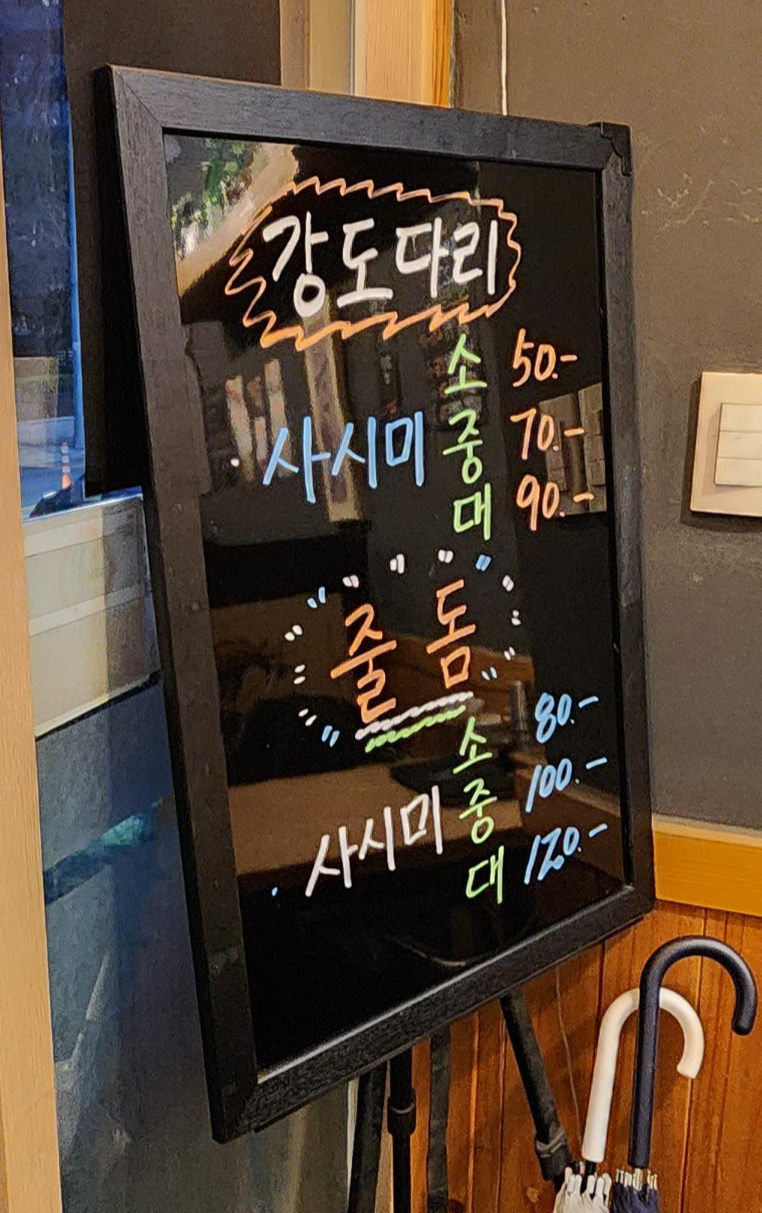 강도다리
소 50.-
사시미 중 70.-
대 90.-
줄 돔
소 80.-
사시미 중 100.-
대 120.-